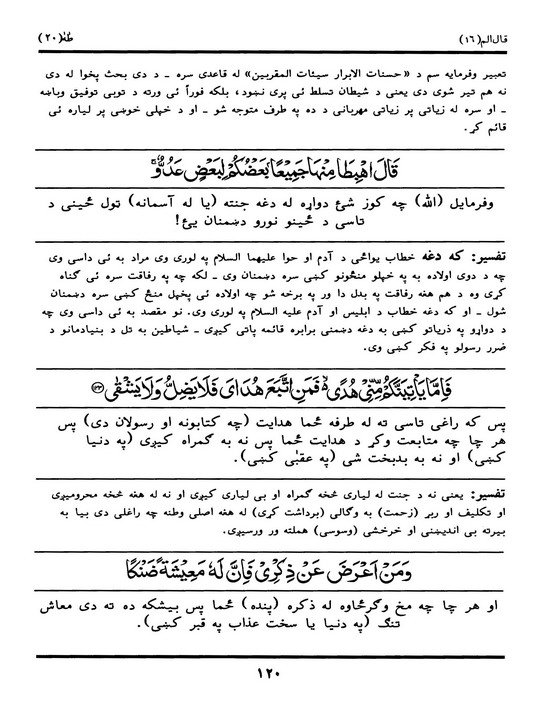 قال الم (١٦)
طٰهٰ (٢٠)
تعبیر وفرمایه سم د «حسنات الابرار سیئات المقربین» له قاعدې سره ـ د دې بحث پخوا له دې
نه هم تیر شوی دی یعنی د شیطان تسلط ئې پرې نښود، بلکه فوراً ئې ورته د توبې توفیق وباښه
ـ او سره له زیاتې پر زیاتې مهربانی د ده په طرف متوجه شو ـ او د خپلې خوښې پر لیاره ئې
قائم کړ.
قَالَ اهْبِطَا مِنْهَا جَمِيعًا بَعْضُكُمْ لِبَعْضٍ عَدُوٌّ
وفرمایل (الله) چه کوز شئ دواړه له دغه جنته (یا له آسمانه) ټول ځینی د
تاسی د ځینو نورو دښمنان یئ!
تفسیر: که دغه خطاب یواځی د آدم او حوا علیهما السلام په لوری وی مراد به ئې داسی وی
چه د دوی اولاده به په خپلو منځونو کښی سره دښمنان وی ـ لکه چه په رفاقت سره ئې گناه
کړې وه د هم هغه رفاقت په بدل دا ور په برخه شو چه اولاده ئې پخپل منځ کښی سره دښمنان
شول ـ او که دغه خطاب د ابلیس او آدم علیه السلام په لوری وی. نو مقصد به ئې داسی وی چه
د دواړو په ذریاتو کښی به دغه دښمنی برابره قائمه پاتی کیږی ـ شیاطین به تل د بنیادمانو د
ضرر رسولو په فکر کښی وی.
فَاِمَّا يَاْتِيَنَّكُمْ مِّنِّيْ هُدًى فَمَنِ اتَّبَعَ هُدَايَ فَلَا يَضِلُّ وَلَا يَشْقٰى ﴿١٢٣﴾
پس که راغی تاسی ته له طرفه ځما هدایت (چه کتابونه او رسولان دی) پس
هر چا چه متابعت وکړ د هدایت ځما پس نه به گمراه کیږی (په دنیا
کښی) او نه به بدبخت شی (په عقبٰی کښی).
تفسیر: یعنی نه د جنت له لیاری څخه گمراه او بی لیاری کیږی او نه له هغه څخه محرومیږی
او تکلیف او ربړ (زحمت) به وگالی (برداشت کړی) له هغه اصلی وطنه چه راغلی دی بیا به
بیرته بی اندیښنی او خرخشی (وسوسی) هملته ور ورسیږی.
وَمَنْ اَعْرَضَ عَنْ ذِكْرِيْ فَاِنَّ لَهٗ مَعِيْشَةً ضَنْكًا
او هر چا چه مخ وگرځاوه له ذکره (پنده) ځما پس بیشکه ده ته دی معاش
تنگ (په دنیا یا سخت عذاب په قبر کښی).
١٢٠